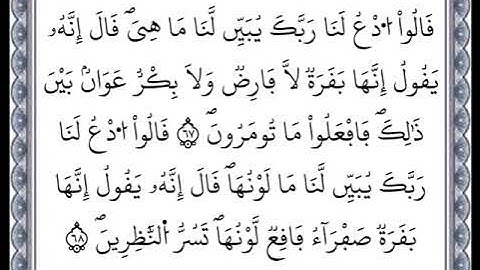 قَالُواْ اُ۟دْعُ لَنَا رَبَّكَ يُبَيِّن لَّنَا مَا هِيَۖ قَالَ إِنَّهُۥ
يَقُولُ إِنَّهَا بَقَرَةٞ لَّا فَارِضٞ وَلَا بِكْرٌ عَوَانُۢ بَيْنَ
ذَٰلِكَۖ فَافْعَلُواْ مَا تُومَرُونَۖ ۝٦٧ قَالُواْ اُ۟دْعُ لَنَا
رَبَّكَ يُبَيِّن لَّنَا مَا لَوْنُهَاۖ قَالَ إِنَّهُۥ يَقُولُ إِنَّهَا
بَقَرَةٞ صَفْرَآءُ فَاقِعٞ لَّوْنُهَاۖ تَسُرُّ اُ۬لنَّٰظِرِينَۖ ۝٦٨